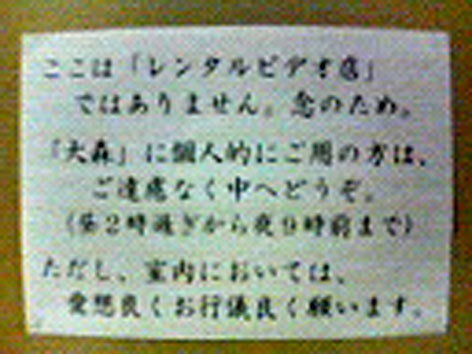 ここは「レンタルビデオ店」
ではありません。念のため。
「大森」に個人的にご用の方は、
ご遠慮なく中へどうぞ。
(昼2時過ぎから夜9時前まで)
ただし、室内においては、
愛想良くお行儀良く願います。